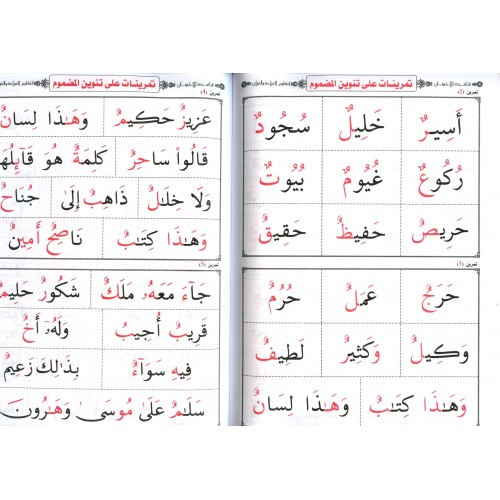 تمرينات على تنوين المضموم
تمرين (٢)
أَسِيرٌ خَلِيلٌ سُجُودٌ
رُكُوعٌ غُيُومٌ بُيُوتٌ
حَرِيصٌ حَفِيظٌ حَقِيقٌ
تمرين (٣)
حَرَجٌ عَمَلٌ حُرُمٌ
وَكِيلٌ وَكَثِيرٌ لَطِيفٌ
وَهَـٰذَا كِتَـٰبٌ وَهَـٰذَا لِسَانٌ
تمرينات على تنوين المضموم
تمرين (٤)
عَزِيزٌ حَكِيمٌ وَهَـٰذَا لِسَانٌ
قَالُوا۟ سَاحِرٌ كَلِمَةٌ هُوَ قَآئِلُهَا
وَلَا خِلَـٰلٌ ذَاهِبٌ إِلَىٰ جُنَاحٌ
وَهَـٰذَا كِتَـٰبٌ نَاصِحٌ أَمِينٌ
جَآءَ مَعَهُۥ مَلَكٌ شَكُورٌ حَلِيمٌ
قَرِيبٌ أُجِيبُ وَلَهُۥٓ أَخٌ
فِيهِ سَوَآءٌ بِذَٰلِكَ زَعِيمٌ
سَلَـٰمٌ عَلَىٰ مُوسَىٰ وَهَـٰرُونَ